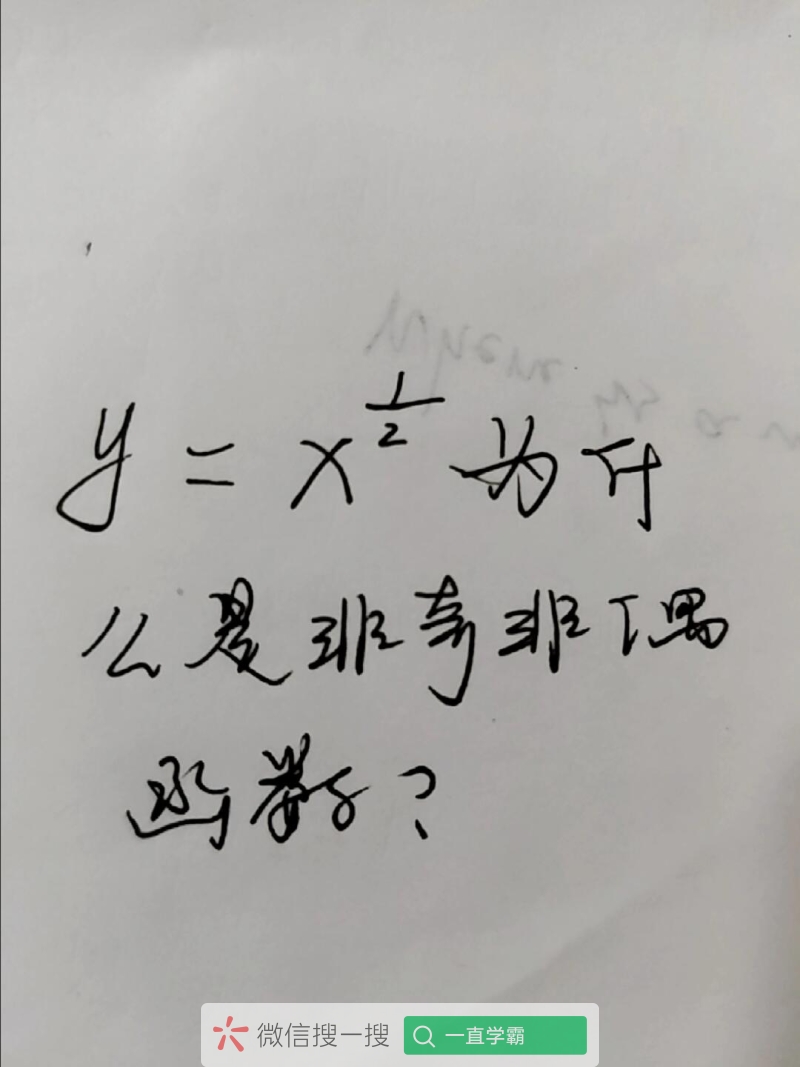 y = x^{\frac{1}{2}} 为什
么是非奇非偶
函数?
微信搜一搜 一直学霸